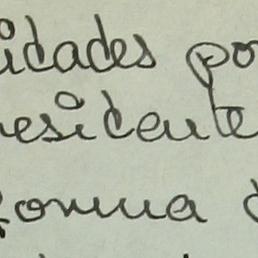 idades po
residente
forma d